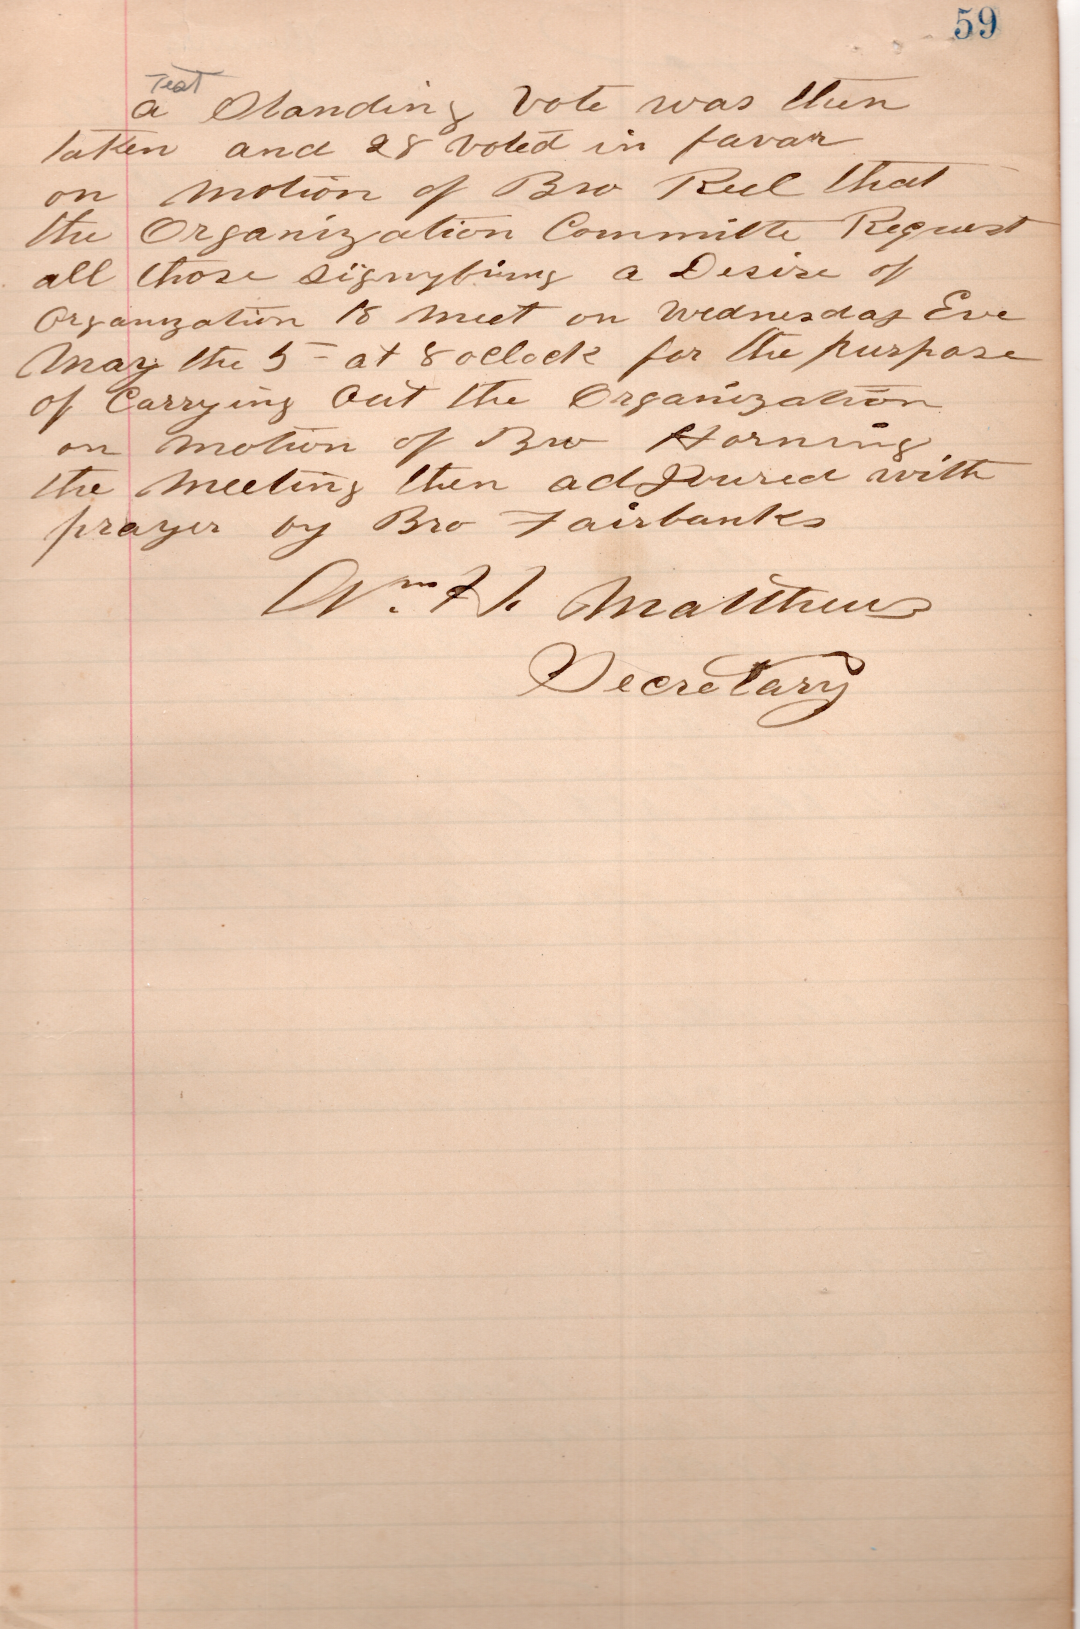 59
Test
a Standing Vote was then
taken and 28 Voted in favar
on Motion of Bro Reel that
the Organization Committe Request
all those signyfiing a Desire of
Organization to Meet on Wednesday Eve
May the 5 - at 8 oclock for the purpose
of Carrying Out the Organization
on Motion of Bro Horning
the Meeting then adjoured with
prayer by Bro Fairbanks
Wm. H. Matthews
Secretary